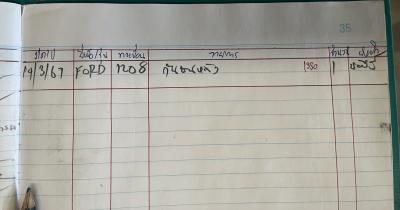 35
ว/ด/ป ยี่ห้อ/รุ่น ทะเบียน รายการ จำนวน
19/3/67 FORD 1208 กันชนหลัง 1350 1